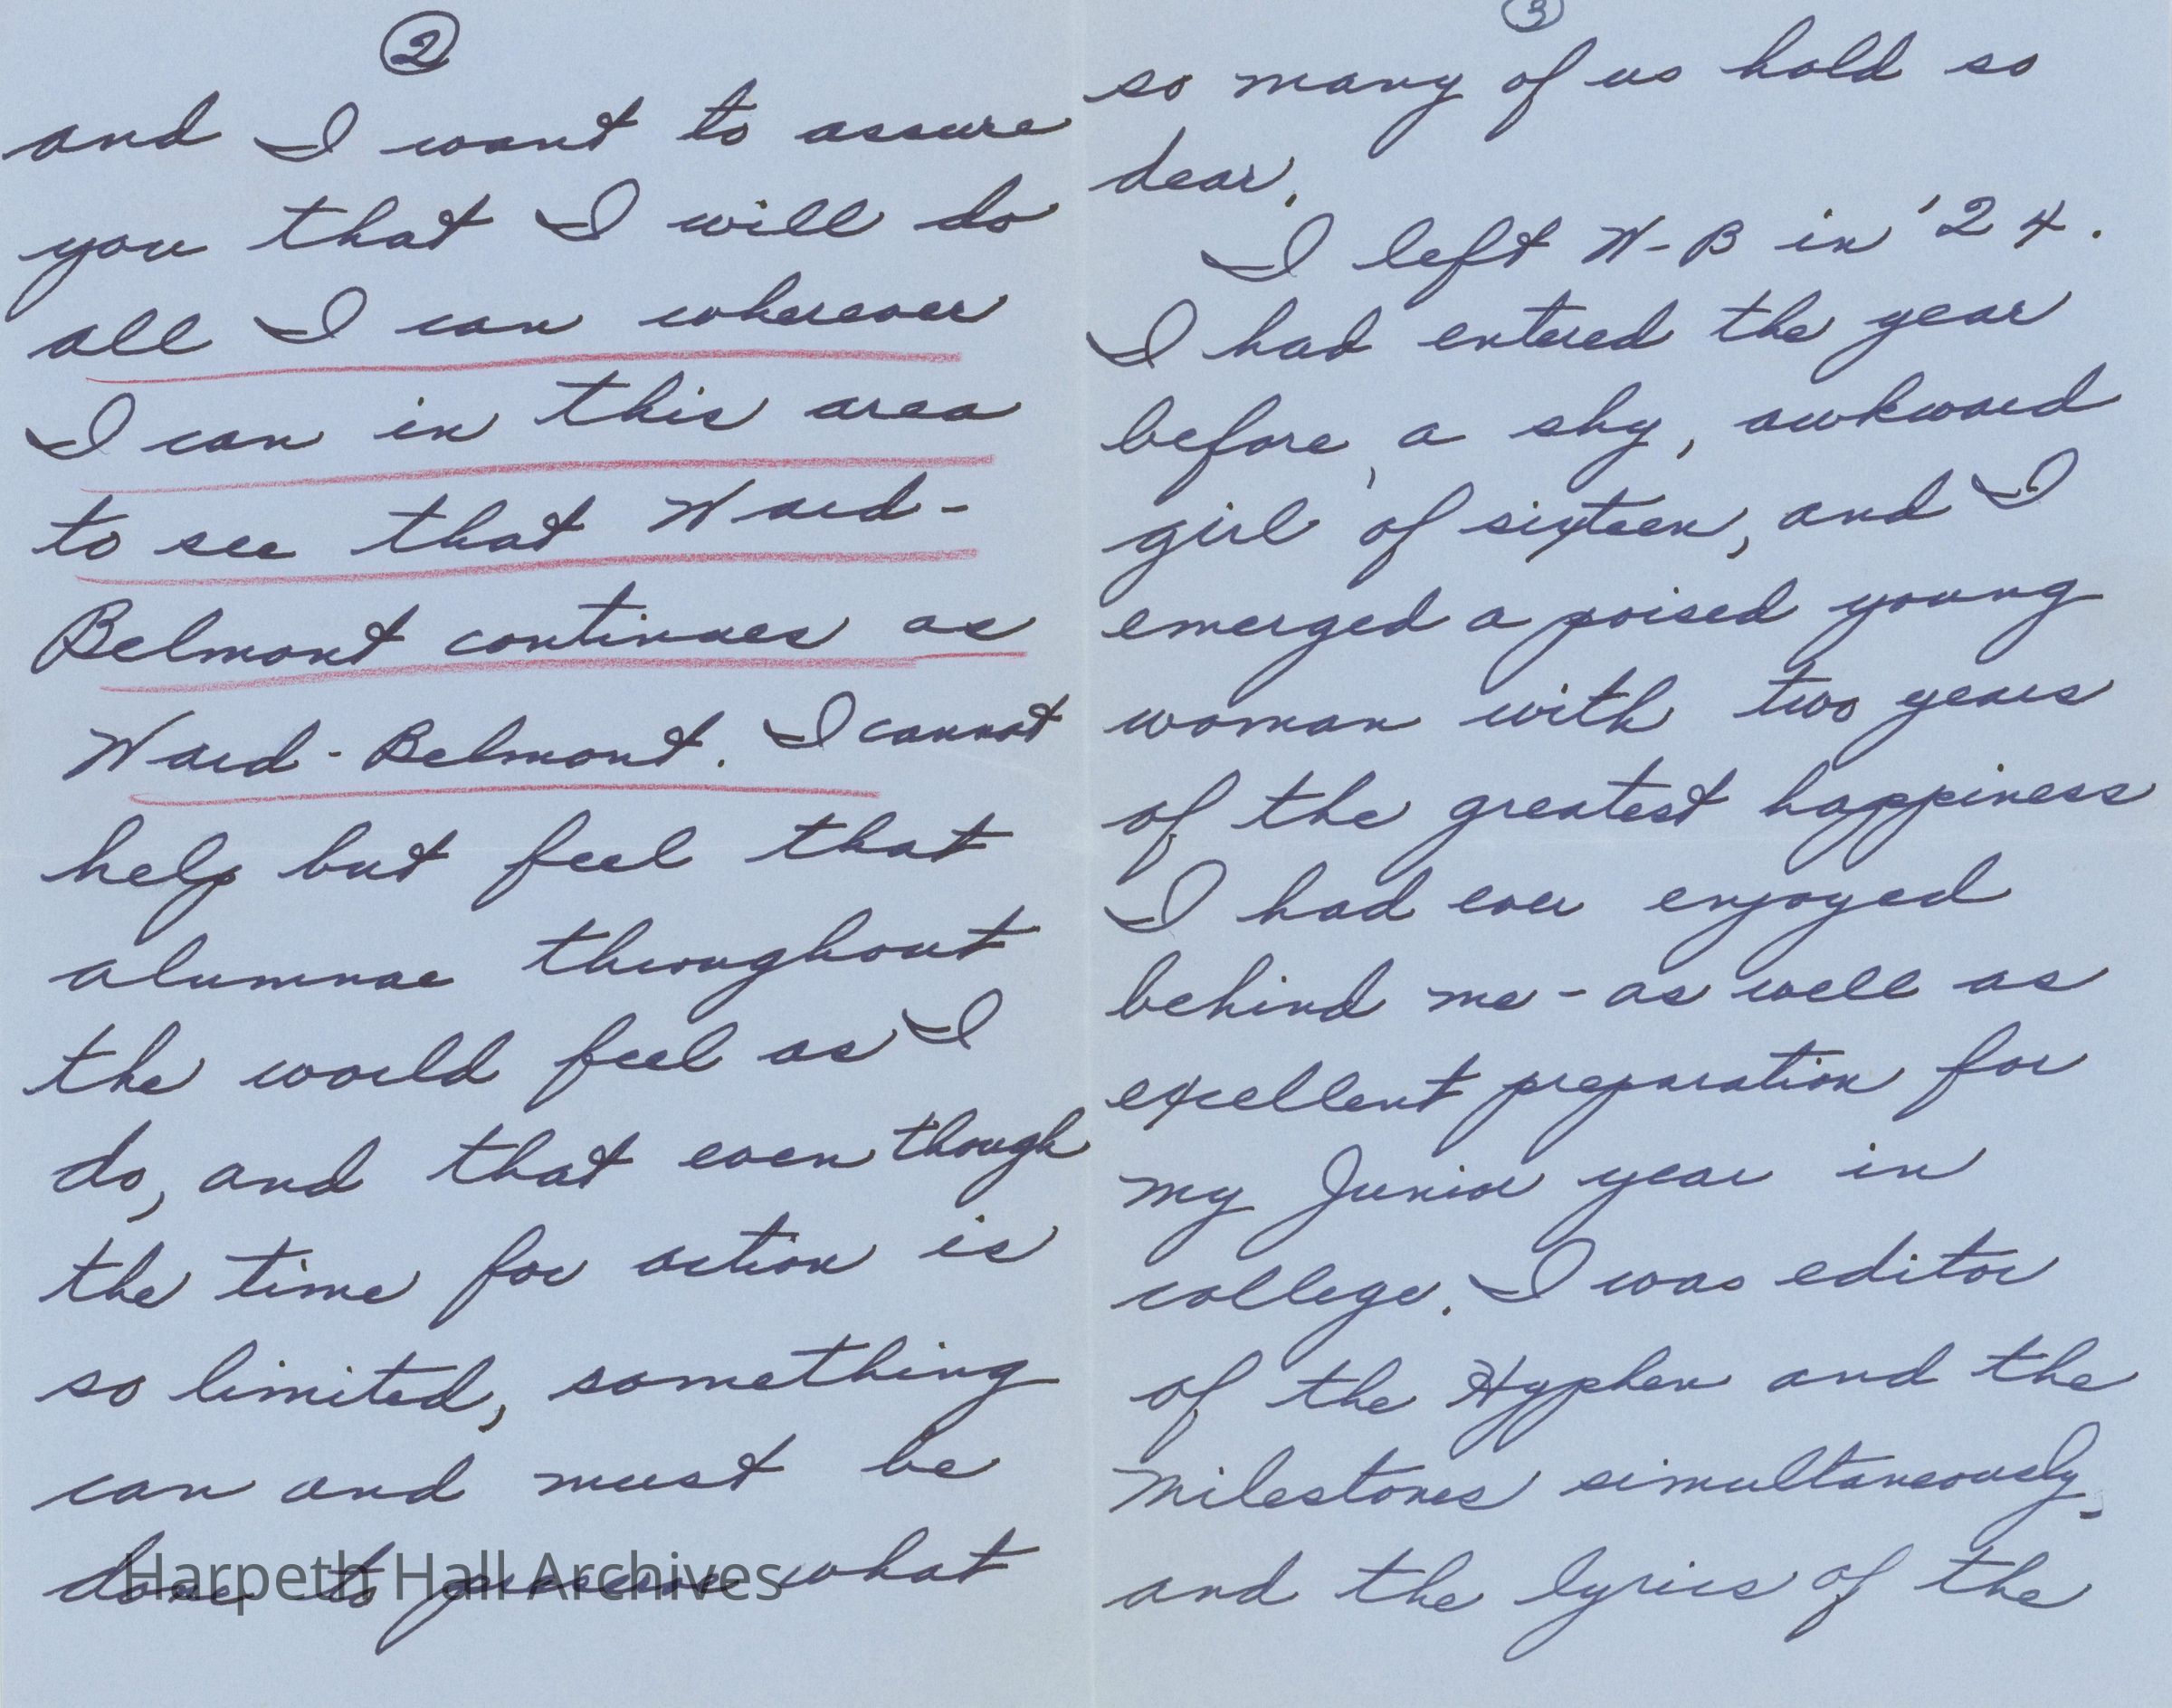 2
and I want to assure
you that I will do
all I can wherever
I can in this area
to see that Ward-
Belmont continues as
Ward-Belmont. I cannot
help but feel that
alumnae throughout
the world feel as I
do, and that even though
the time for action is
so limited, something
can and must be
done to preserve what
Harpeth Hall Archives
3
so many of us hold so
dear.
I left W-B in '24.
I had entered the year
before, a shy, awkward
girl of sixteen, and I
emerged a poised young
woman with two years
of the greatest happiness
I had ever enjoyed
behind me - as well as
excellent preparation for
my Junior year in
college. I was editor
of the Hyphen and the
Milestones simultaneously,
and the lyrics of the